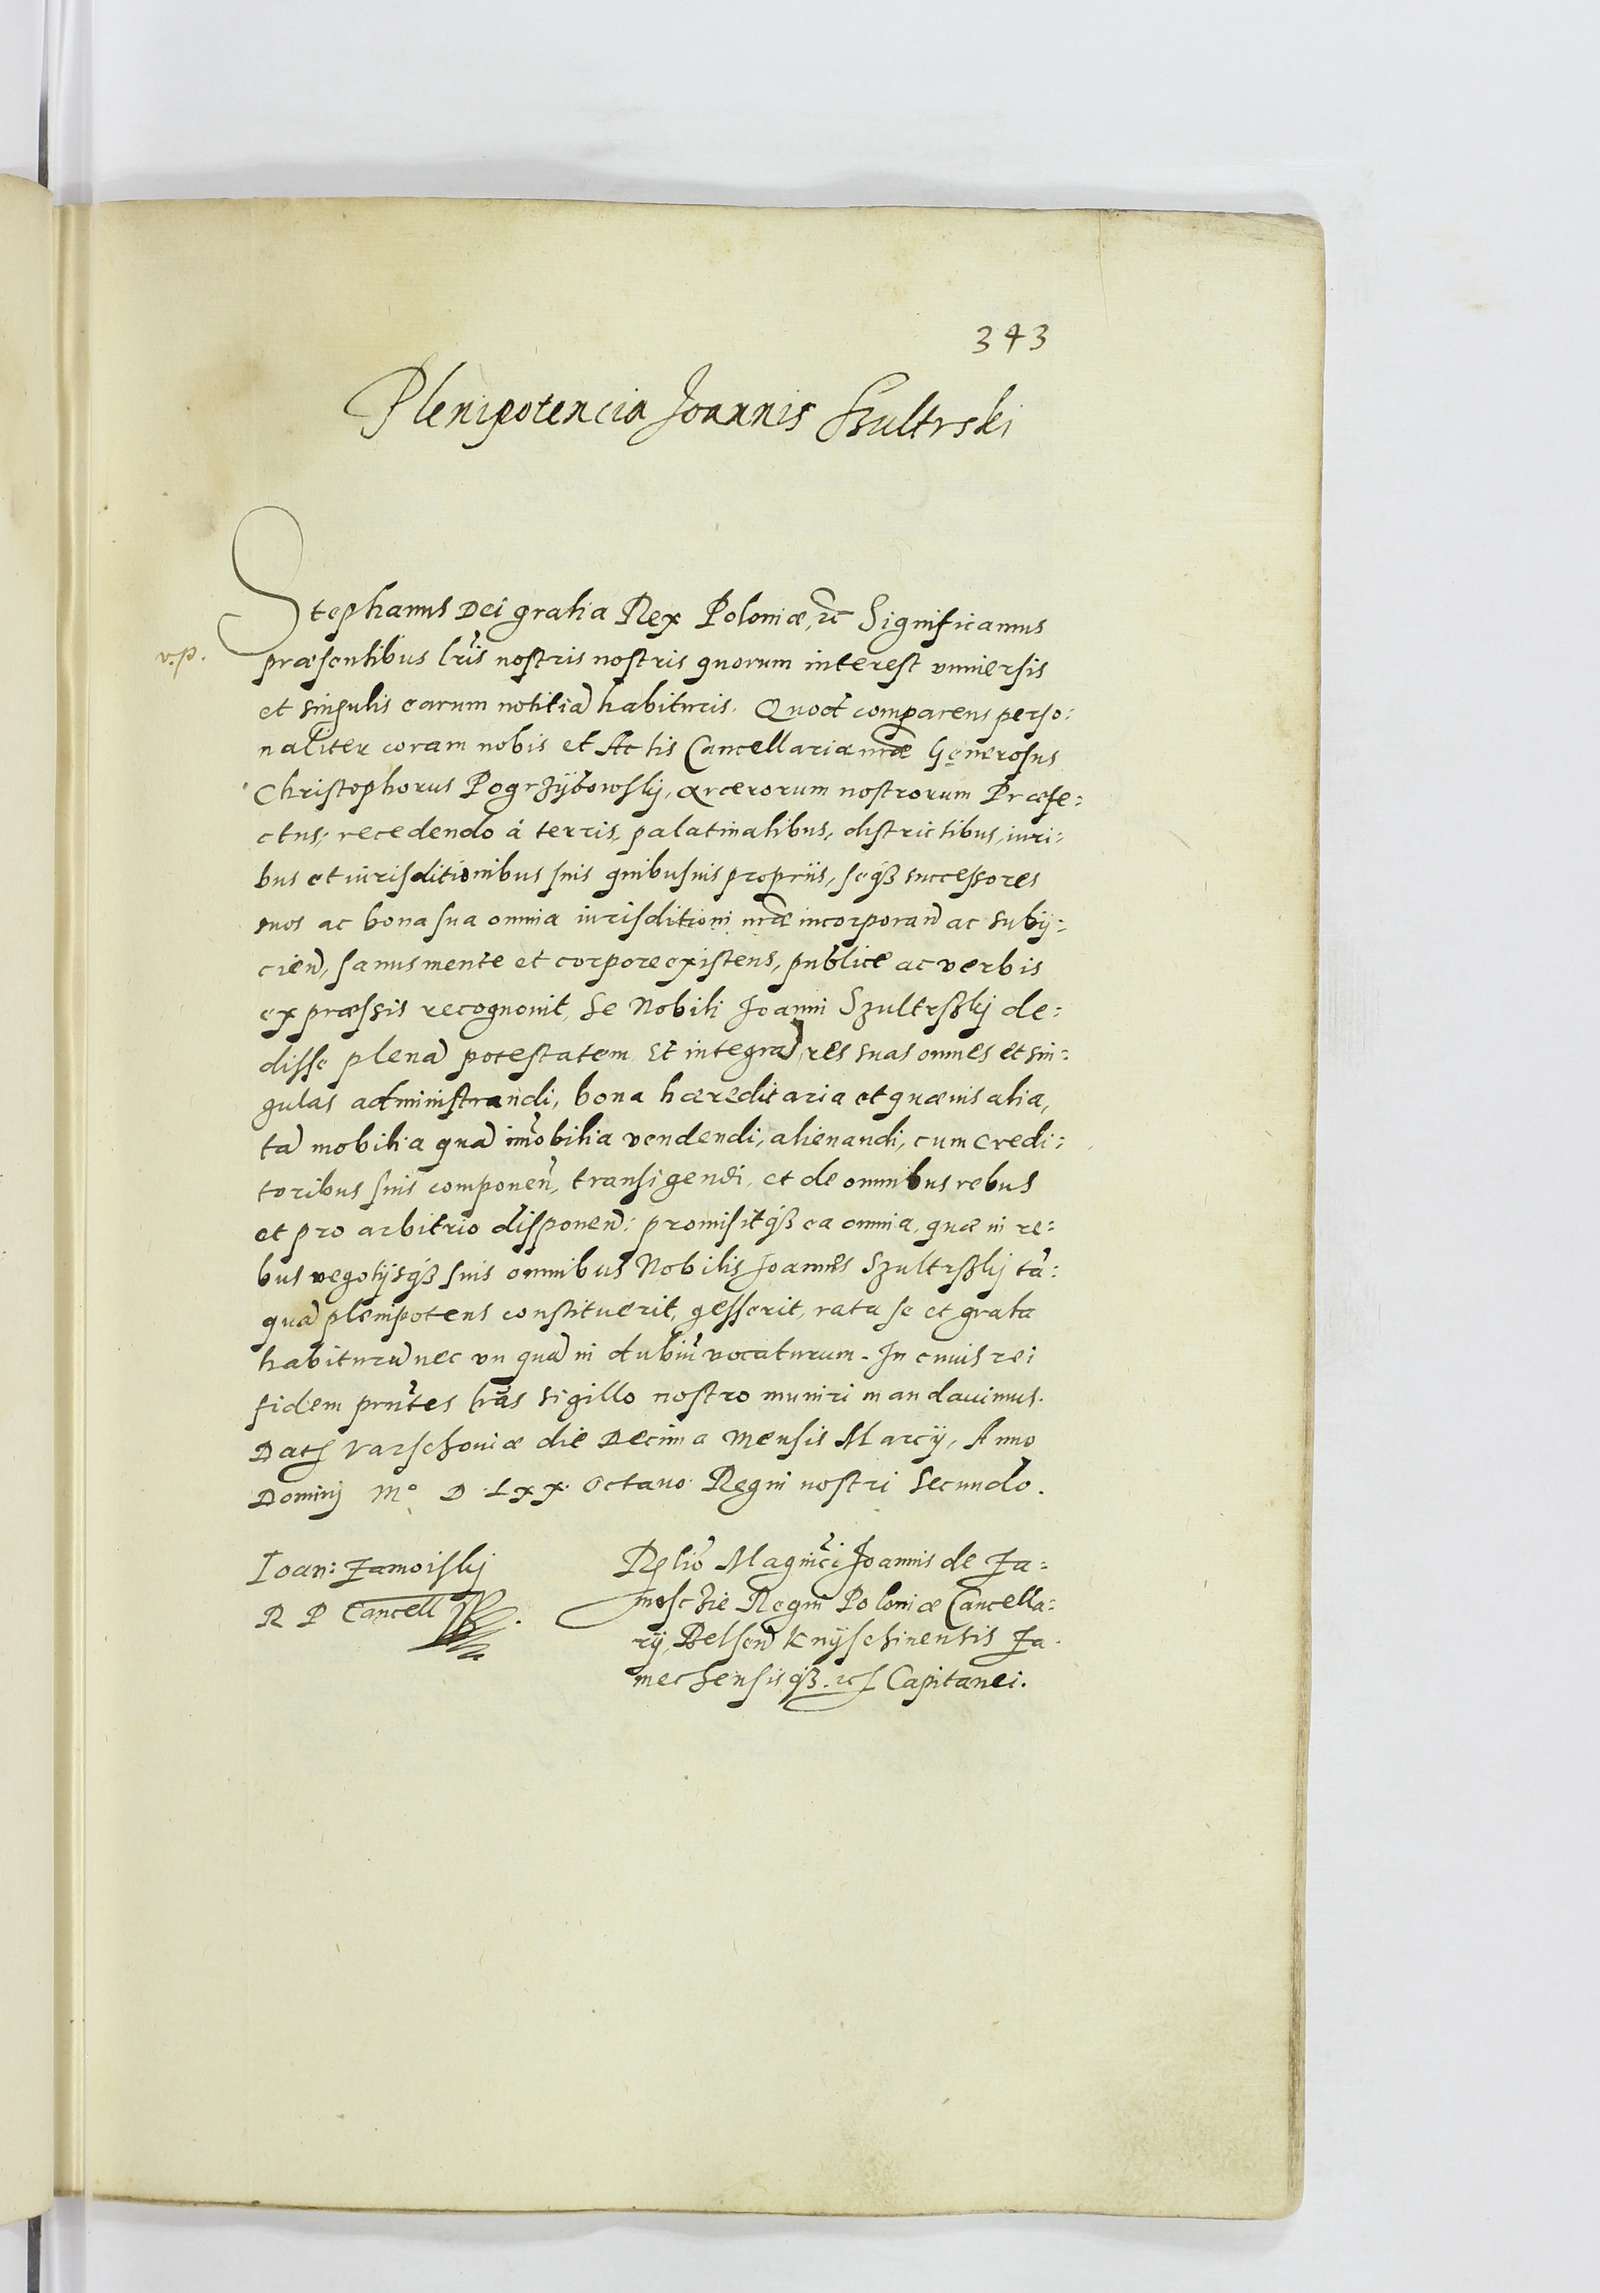 343
Plenipotencia Joannis Szultrski
Stephanus Dei gratia Rex Poloniæ, etc Significamus
v.p.
præsentibus lr̃is nostris nostris quorum interest vniuersis
et singulis earum notitiã habituris. Quod comparens perso:
naliter coram nobis et Actis Cancellariæ nr̃æ Generosus
Christophorus Pogrzÿbowskj, arcerorum nostrorum Præfe:
ctus, recedendo á terris, palatinatibus, districtibus, iuri:
bus et iurisditionibus suis quibusuis proprijs, seqȝ successores
suos ac bona sua omnia iurisditioni nr̃æ incorporan̄ ac subÿ:
cien̄, sanus mente et corpore existens, publice ac verbis
expræssis recognouit, se Nobili Joanni Szultrskj de:
disse plenã potestatem et integrã, res suas omnes et sin:
gulas administrandi, bona hæreditaria et quæuis alia,
tã mobilia quã im̃obilia vendendi, alienandi, cum credi:
toribus suis componen̄, transigendi, et de omnibus rebus
et pro arbitrio disponen̄: promisitqȝ ea omnia, quæ in re:
bus negotijsqȝ suis omnibus Nobilis Joannes Szultrskj tã:
quã plenipotens constituerit, gesserit, rata se et grata
habiturũ nec vn quã in dubiũ vocaturum. In cuius rei
fidem pñtes lr̃as sigillo nostro muniri mandauimus.
Dat Varschouiæ die Decima Mensis Marcÿ, Anno
Dominj Mº D. Lxx. Octauo Regni nostri Secundo.
Ioan: Zamoiskj
R P Cancell
Relio Magnĩci Joannis de Za:
moschie Regni Poloniæ Cancella:
rÿ, Belsen̄ Knÿschinensis Za:
mechensisqȝ etc Capitanei.